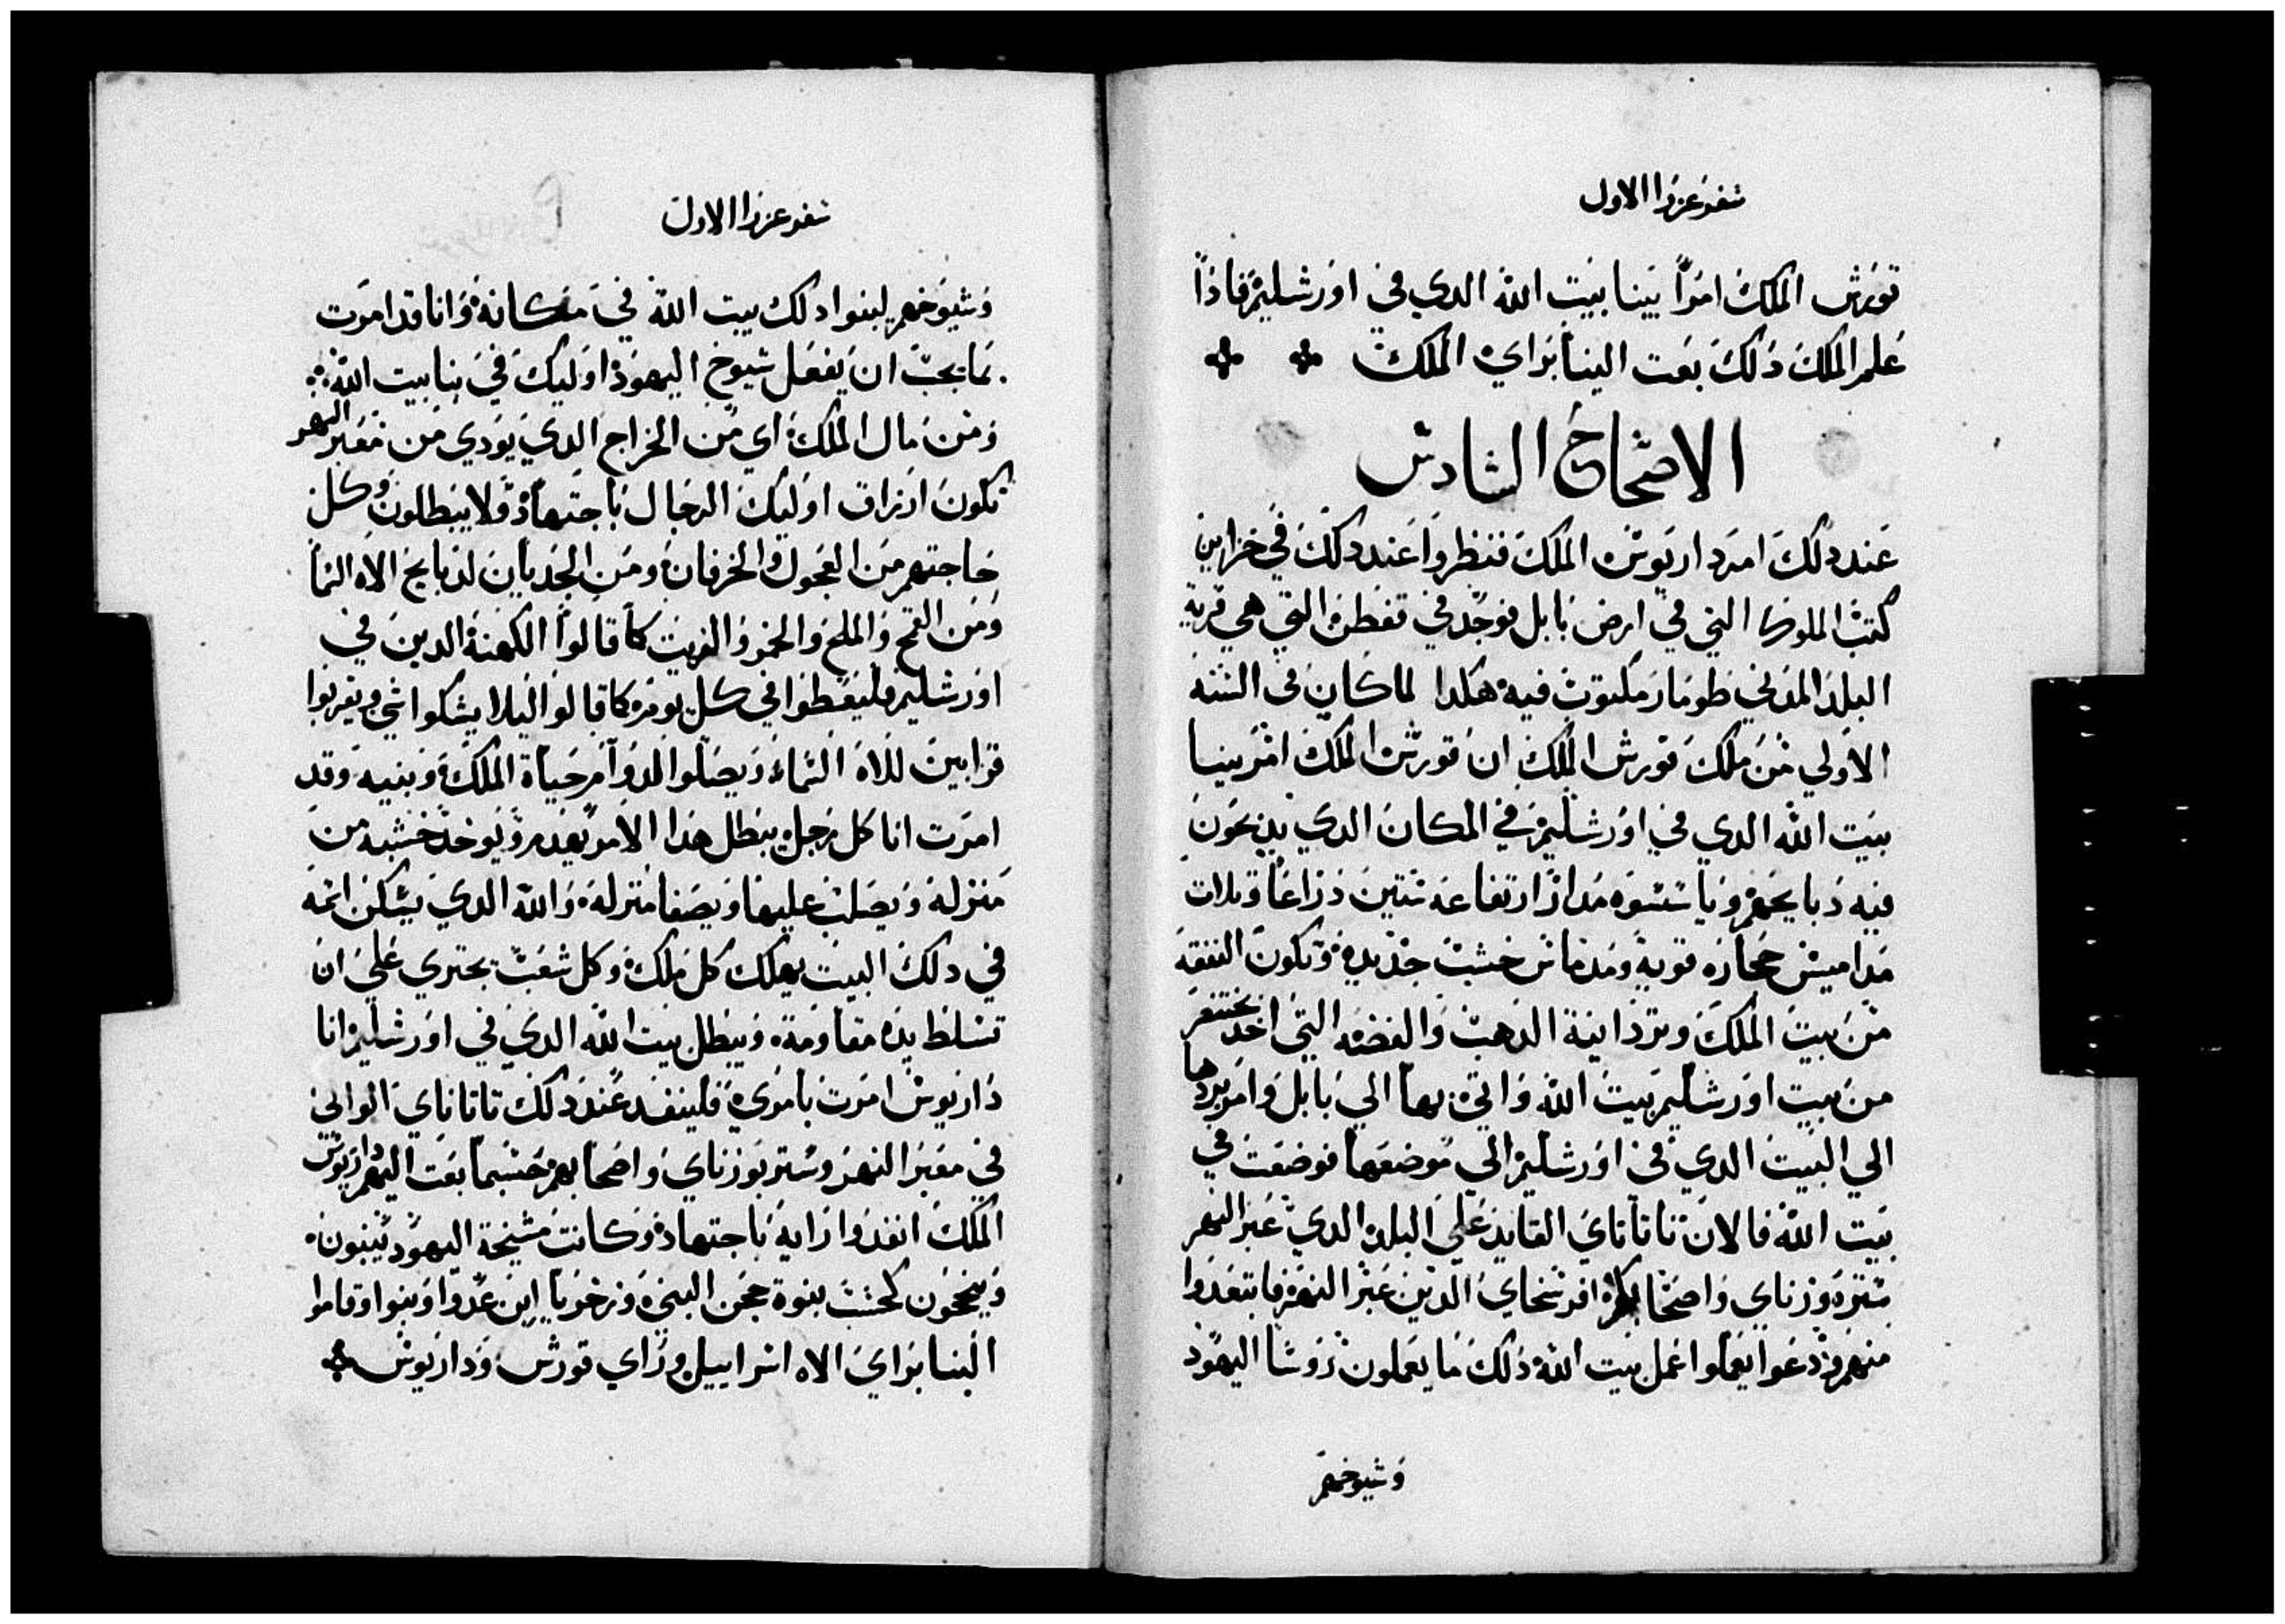 سفر عزرا الاول
قورش الملك امرًا ببنا بيت الله الدي في اورشليم فاذًا
علم الملك دلك بعت الينا براي الملك
الاصحاح السادس
عند دلك امر داريوش الملك فنظروا عند دلك في خزاين
كتب الملوك التي في ارض بابل فوجد في قفطن التي هي قرية
البلد المدني طومار مكتوب فيه هكدا لما كان في السنه
الاولي من ملك قورش الملك ان قورش الملك امر ببنا
بيت الله الدي في اورشليم في المكان الدي يدبحون
فيه دبايحهم وباسسوه مدا ارتفاعه ستين دراعا وتلات
مداميس حجاره قويه ومدماس خشب جديدة وتكون النفقه
من بيت الملك وترد انية الدهب والفضه التي اخد بختنصر
من بيت اورشليم بيت الله واتي بها الي بابل وامر بردها
الي البيت الدي في اورشليم الي موضعها فوضعت في
بيت الله فالان تاناناي القايد علي البلد الدي عبر النهر
ستربوزناي واصحابكم افرسخاي الدين عبر النهر فابتعدوا
منهم ودعوا يعملوا عمل بيت الله دلك ما يعملون روسا اليهود
وشيوخهم
سفر عزرا الاول
وشيوخهم ليبنوا دلك بيت الله في مكانه وانا قد امرت
بما يجب ان يفعل شيوخ اليهود اوليك في بنا بيت الله
ومن مال الملك اي من الخراج الدي يودي من معبر النهر
تكون ارزاق اوليك الرجال باجتهاد ولا يبطلون وكل
حاجتهم من العجول والخرفان ومن الجديان لدبايح الاه السما
ومن القمح والملح والخمر والزيت كما قالوا الكهنة الدين في
اورشليم فليعطوا في كل يوم كما قالوا ليلا يشكوا شي ويقربوا
قرابين للاه السماء ويصلوا لدوام حياة الملك وبنيه وقد
امرت انا كل رجل يبطل هدا الامر يعدم ويوخد خشبه من
منزله ويصلب عليها ويصفا منزله والله الدي يسكن اسمه
في دلك البيت يهلك كل ملك وكل شعب يجتري علي ان
تسلط يده مقاومة ويبطل بيت الله الدي في اورشليم انا
داريوش امرت بامري فلينفد عند دلك تاناناي الوالي
في معبر النهر وستربوزناي واصحابهم حسبما بعت اليهم داريوش
الملك انفدوا رايه باجتهاد وكانت مشيخة اليهود يبنون
وينجحون كحسب بنوة حجي النبي وزخريا ابن عدوا وبنوا وقاموا
البنا براي الاه اسراييل وراي قورش وداريوش